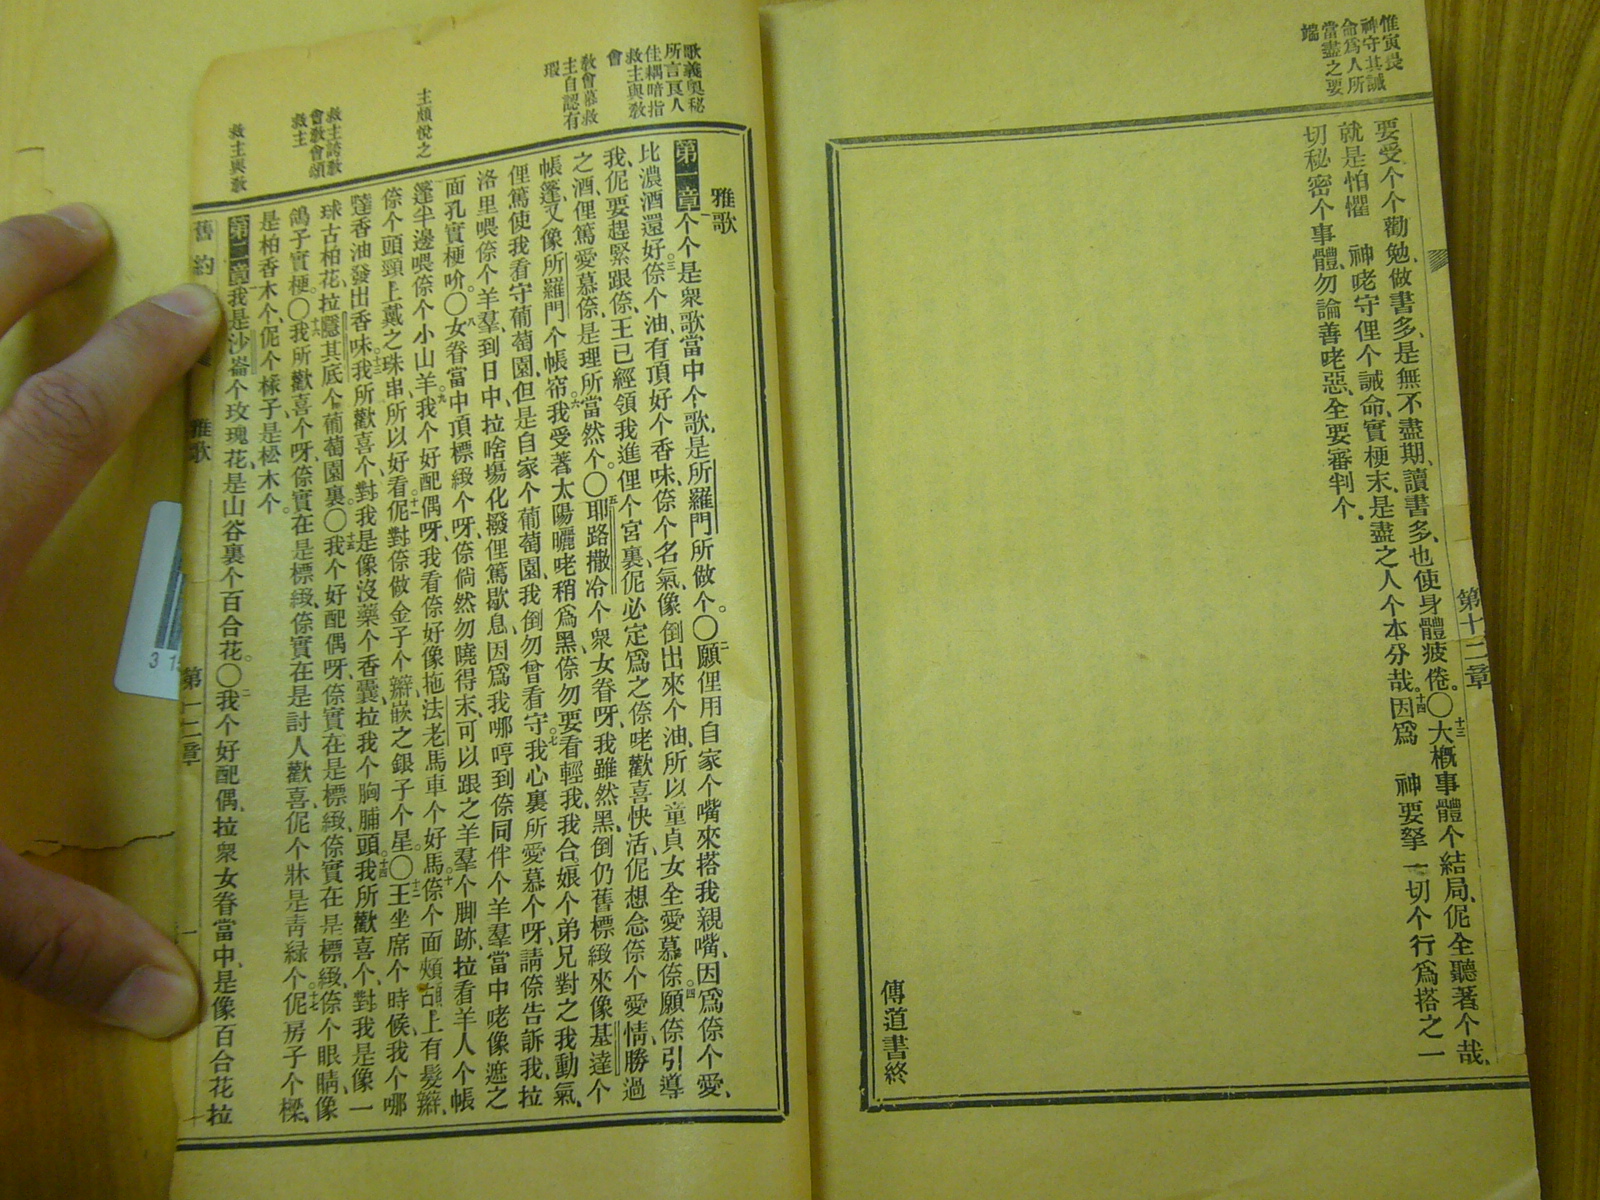 惟寅畏
神守其誡
命爲人所
當盡之要
端
要受个个勸勉、做書多、是無不盡期、讀書多、也使身體疲倦。〇十三大概事體个結局、伲全聽著个哉、
就是怕懼　神咾守俚个誡命、實梗末、是盡之人个本分哉。十四因爲　神要拏一切个行爲、搭之一
切秘密个事體、勿論善咾惡、全要審判个。
傳道書終
第十二章
歌義奧秘
所言良人
佳耦暗指
救主與敎
會
敎會慕救
主自認有
瑕
主頗悅之
救主誇敎
會敎會頌
救主
救主與敎
雅歌
第一章 一个个是衆歌當中个歌、是所羅門所做个。〇二願俚用自家个嘴來搭我親嘴、因爲㑚个愛、
比濃酒還好。三㑚个油、有頂好个香味、㑚个名氣、像倒出來个油、所以童貞女全愛慕㑚。四願㑚引導
我、伲要趕緊跟㑚、王已經領我進俚个宮裏、伲必定爲之㑚咾歡喜快活、伲想念㑚个愛情、勝過
之酒、俚篤愛慕㑚、是理所當然个。〇五耶路撒冷个衆女眷呀、我雖然黑、倒仍舊標緻、來像基達个
帳篷、又像所羅門个帳帘。六我受著太陽曬咾稍爲黑、㑚勿要看輕我、我合娘个弟兄對之我動氣、
俚篤使我看守葡萄園、但是自家个葡萄園、我倒勿曾看守。七我心裏所愛慕个呀、請㑚告訴我、拉
洛里喂㑚个羊羣、到日中、拉啥場化撥俚篤歇息、因爲我哪哼到㑚同伴个羊羣當中咾像遮之
面孔實梗吤。〇八女眷當中頂標緻个呀、㑚倘然勿曉得末、可以跟之羊羣个脚跡、拉看羊人个帳
篷半邊喂㑚个小山羊。九我个好配偶呀、我看㑚好像拖法老馬車个好馬。十㑚个面頰上有髮辮、
㑚个頭頸上戴之珠串、所以好看。十一伲對㑚做金子个辮、嵌之銀子个星。〇十二王坐席个時候、我个哪
噠香油發出香味。十三我所歡喜个、對我是像沒藥个香囊、拉我个胸脯頭。十四我所歡喜个、對我是像一
球古柏花、拉隱其底个葡萄園裏。〇十五我个好配偶呀、㑚實在是標緻、㑚實在是標緻、㑚个眼睛、像
鴿子實梗。〇十六我所歡喜个呀、㑚實在是標緻、㑚實在是討人歡喜、伲个牀是靑綠个。十七伲房子个樑、
是柏香木个、伲个椽子是松木个。
第二章 一我是沙崙个玫瑰花、是山谷裏个百合花。〇二我个好配偶、拉衆女眷當中、是像百合花拉
舊約
雅歌
第一二章
一